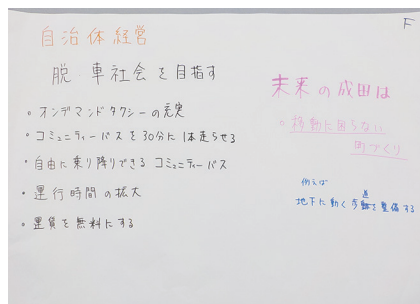 F
自治体経営
脱 車社会を目指す
。オンデマンドタクシーの充実
。コミュニティーバスを30分に1本走らせる
。自由に乗り降りできる コミュニティーバス
・運行時間の拡大
・運賃を無料にする
未来の成田は
。移動に困らない
町づくり
例えば
地下に動く歩道を整備する